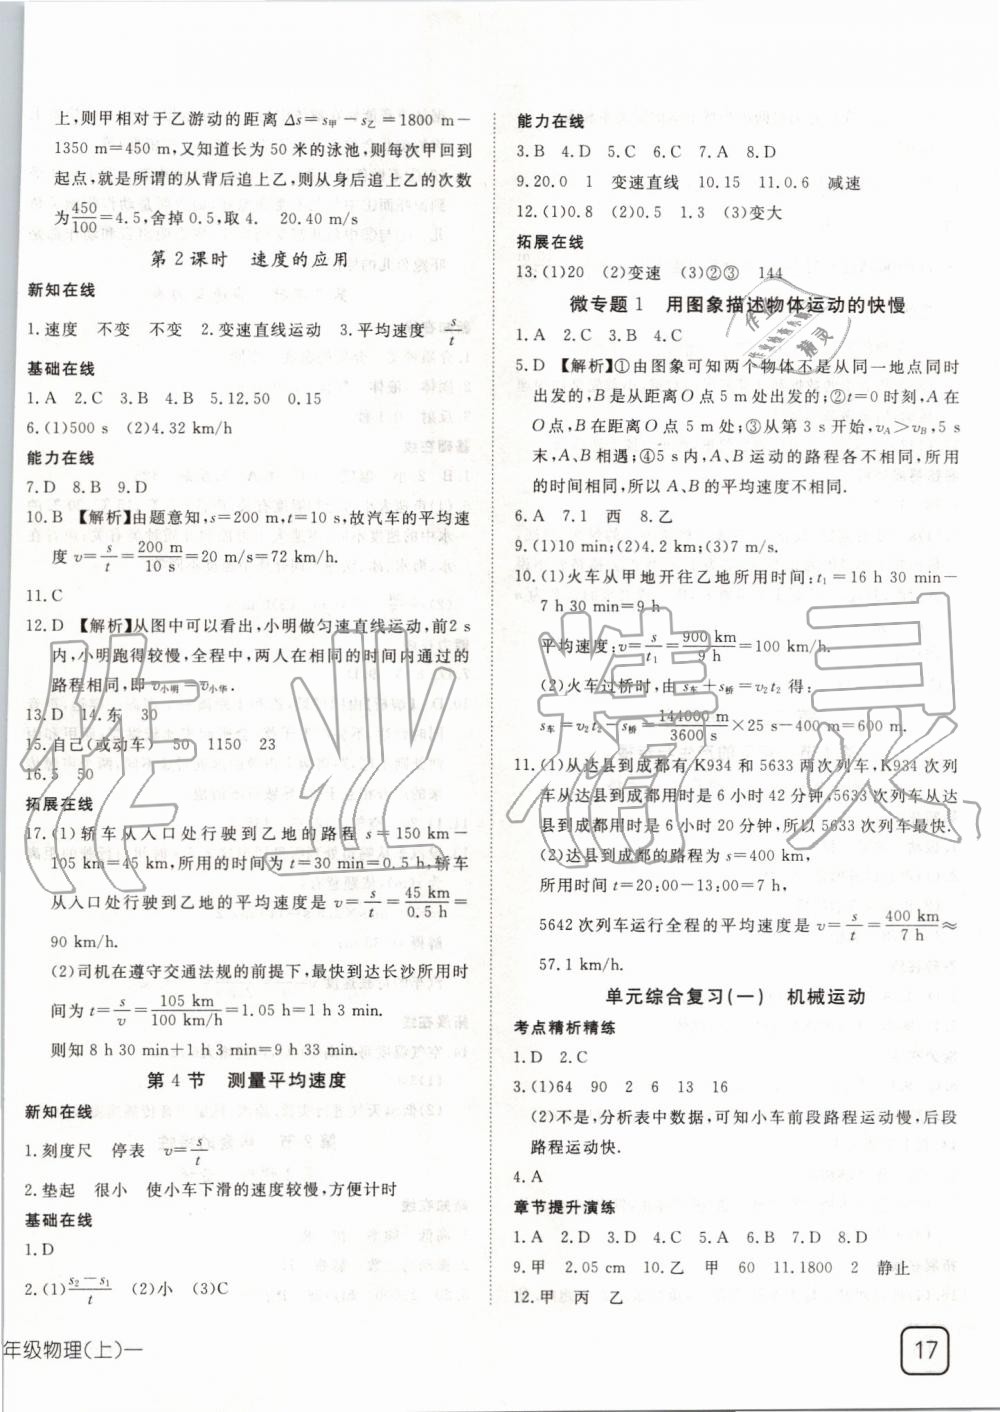 上,则甲相对于乙游动的距离 Δs=s甲-s乙=1800 m-
1350 m=450 m,又知道长为 50 米的泳池,则每次甲回到
起点,就是所谓的从背后追上乙,则从身后追上乙的次数
为450/100=4.5,舍掉 0.5,取4. 20.40 m/s
第 2 课时 速度的应用
新知在线
1.速度 不变 不变 2.变速直线运动 3.平均速度 s/t
基础在线
1.A 2.C 3.B 4.B 5.12.50 0.15
6.(1)500 s (2)4.32 km/h
能力在线
7.D 8.B 9.D
10.B 【解析】由题意知,s=200 m,t=10 s,故汽车的平均速
度 v=s/t=200 m/10 s=20 m/s=72 km/h.
11.C
12.D 【解析】从图中可以看出,小明做匀速直线运动,前2 s
内,小明跑得较慢,全程中,两人在相同的时间内通过的
路程相同,即 v小明=v小华.
13.D 14.东 30
15.自己(或动车) 50 1150 23
16.5 50
拓展在线
17.(1)轿车从入口处行驶到乙地的路程 s=150 km-
105 km=45 km,所用的时间为 t=30 min=0.5 h,轿车
从入口处行驶到乙地的平均速度是 v=s/t=45 km/0.5 h=
90 km/h.
(2)司机在遵守交通法规的前提下,最快到达长沙所用时
间为 t=s/v=105 km/100 km/h=1.05 h=1 h 3 min.
则知 8 h 30 min+1 h 3 min=9 h 33 min.
第 4 节 测量平均速度
新知在线
1.刻度尺 停表 v=s/t
2.垫起 很小 使小车下滑的速度较慢,方便计时
基础在线
1.D
2.(1)s2-s1/t (2)小 (3)C
年级物理(上)一
能力在线
3.B 4.D 5.C 6.C 7.A 8.D
9.20.0 1 变速直线 10.15 11.0.6 减速
12.(1)0.8 (2)0.5 1.3 (3)变大
拓展在线
13.(1)20 (2)变速 (3)②③ 144
微专题 1 用图象描述物体运动的快慢
1.A 2.C 3.B 4.C
5.D 【解析】①由图象可知两个物体不是从同一地点同时
出发的,B是从距离O点 5 m处出发的;②t=0时刻,A在
O点,B在距离O点 5 m 处;③从第 3 s 开始,vA>vB,5 s
末,A、B 相遇;④5 s内,A、B 运动的路程各不相同,所用
时间相同,所以 A、B 的平均速度不相同.
6.A 7.1 西 8.乙
9.(1)10 min;(2)4.2 km;(3)7 m/s.
10.(1)火车从甲地开往乙地所用时间:t1=16 h 30 min-
7 h 30 min=9 h
平均速度:v=s/t1=900 km/9 h=100 km/h.
(2)火车过桥时,由 s车+s桥=v2t2 得:
s车=v2t2-s桥=144000 m/3600 s×25 s-400 m=600 m.
11.(1)从达县到成都有 K934 和 5633 两次列车,K934 次列
车从达县到成都用时是 6 小时 42 分钟,5633次列车从达
县到成都用时是6小时20分钟,所以5633次列车最快.
(2)达县到成都的路程为 s=400 km,
所用时间 t=20:00-13:00=7 h,
5642 次列车运行全程的平均速度是 v=s/t=400 km/7 h≈
57.1 km/h.
单元综合复习(一) 机械运动
考点精析精练
1.D 2.C
3.(1)64 90 2 6 13 16
(2)不是,分析表中数据,可知小车前段路程运动慢,后段
路程运动快.
4.A
章节提升演练
1.A 2.D 3.D 4.C 5.D 6.B 7.D 8.D
9.甲 2.05 cm 10.乙 甲 60 11.1800 2 静止
12.甲 丙 乙
17
作业精灵